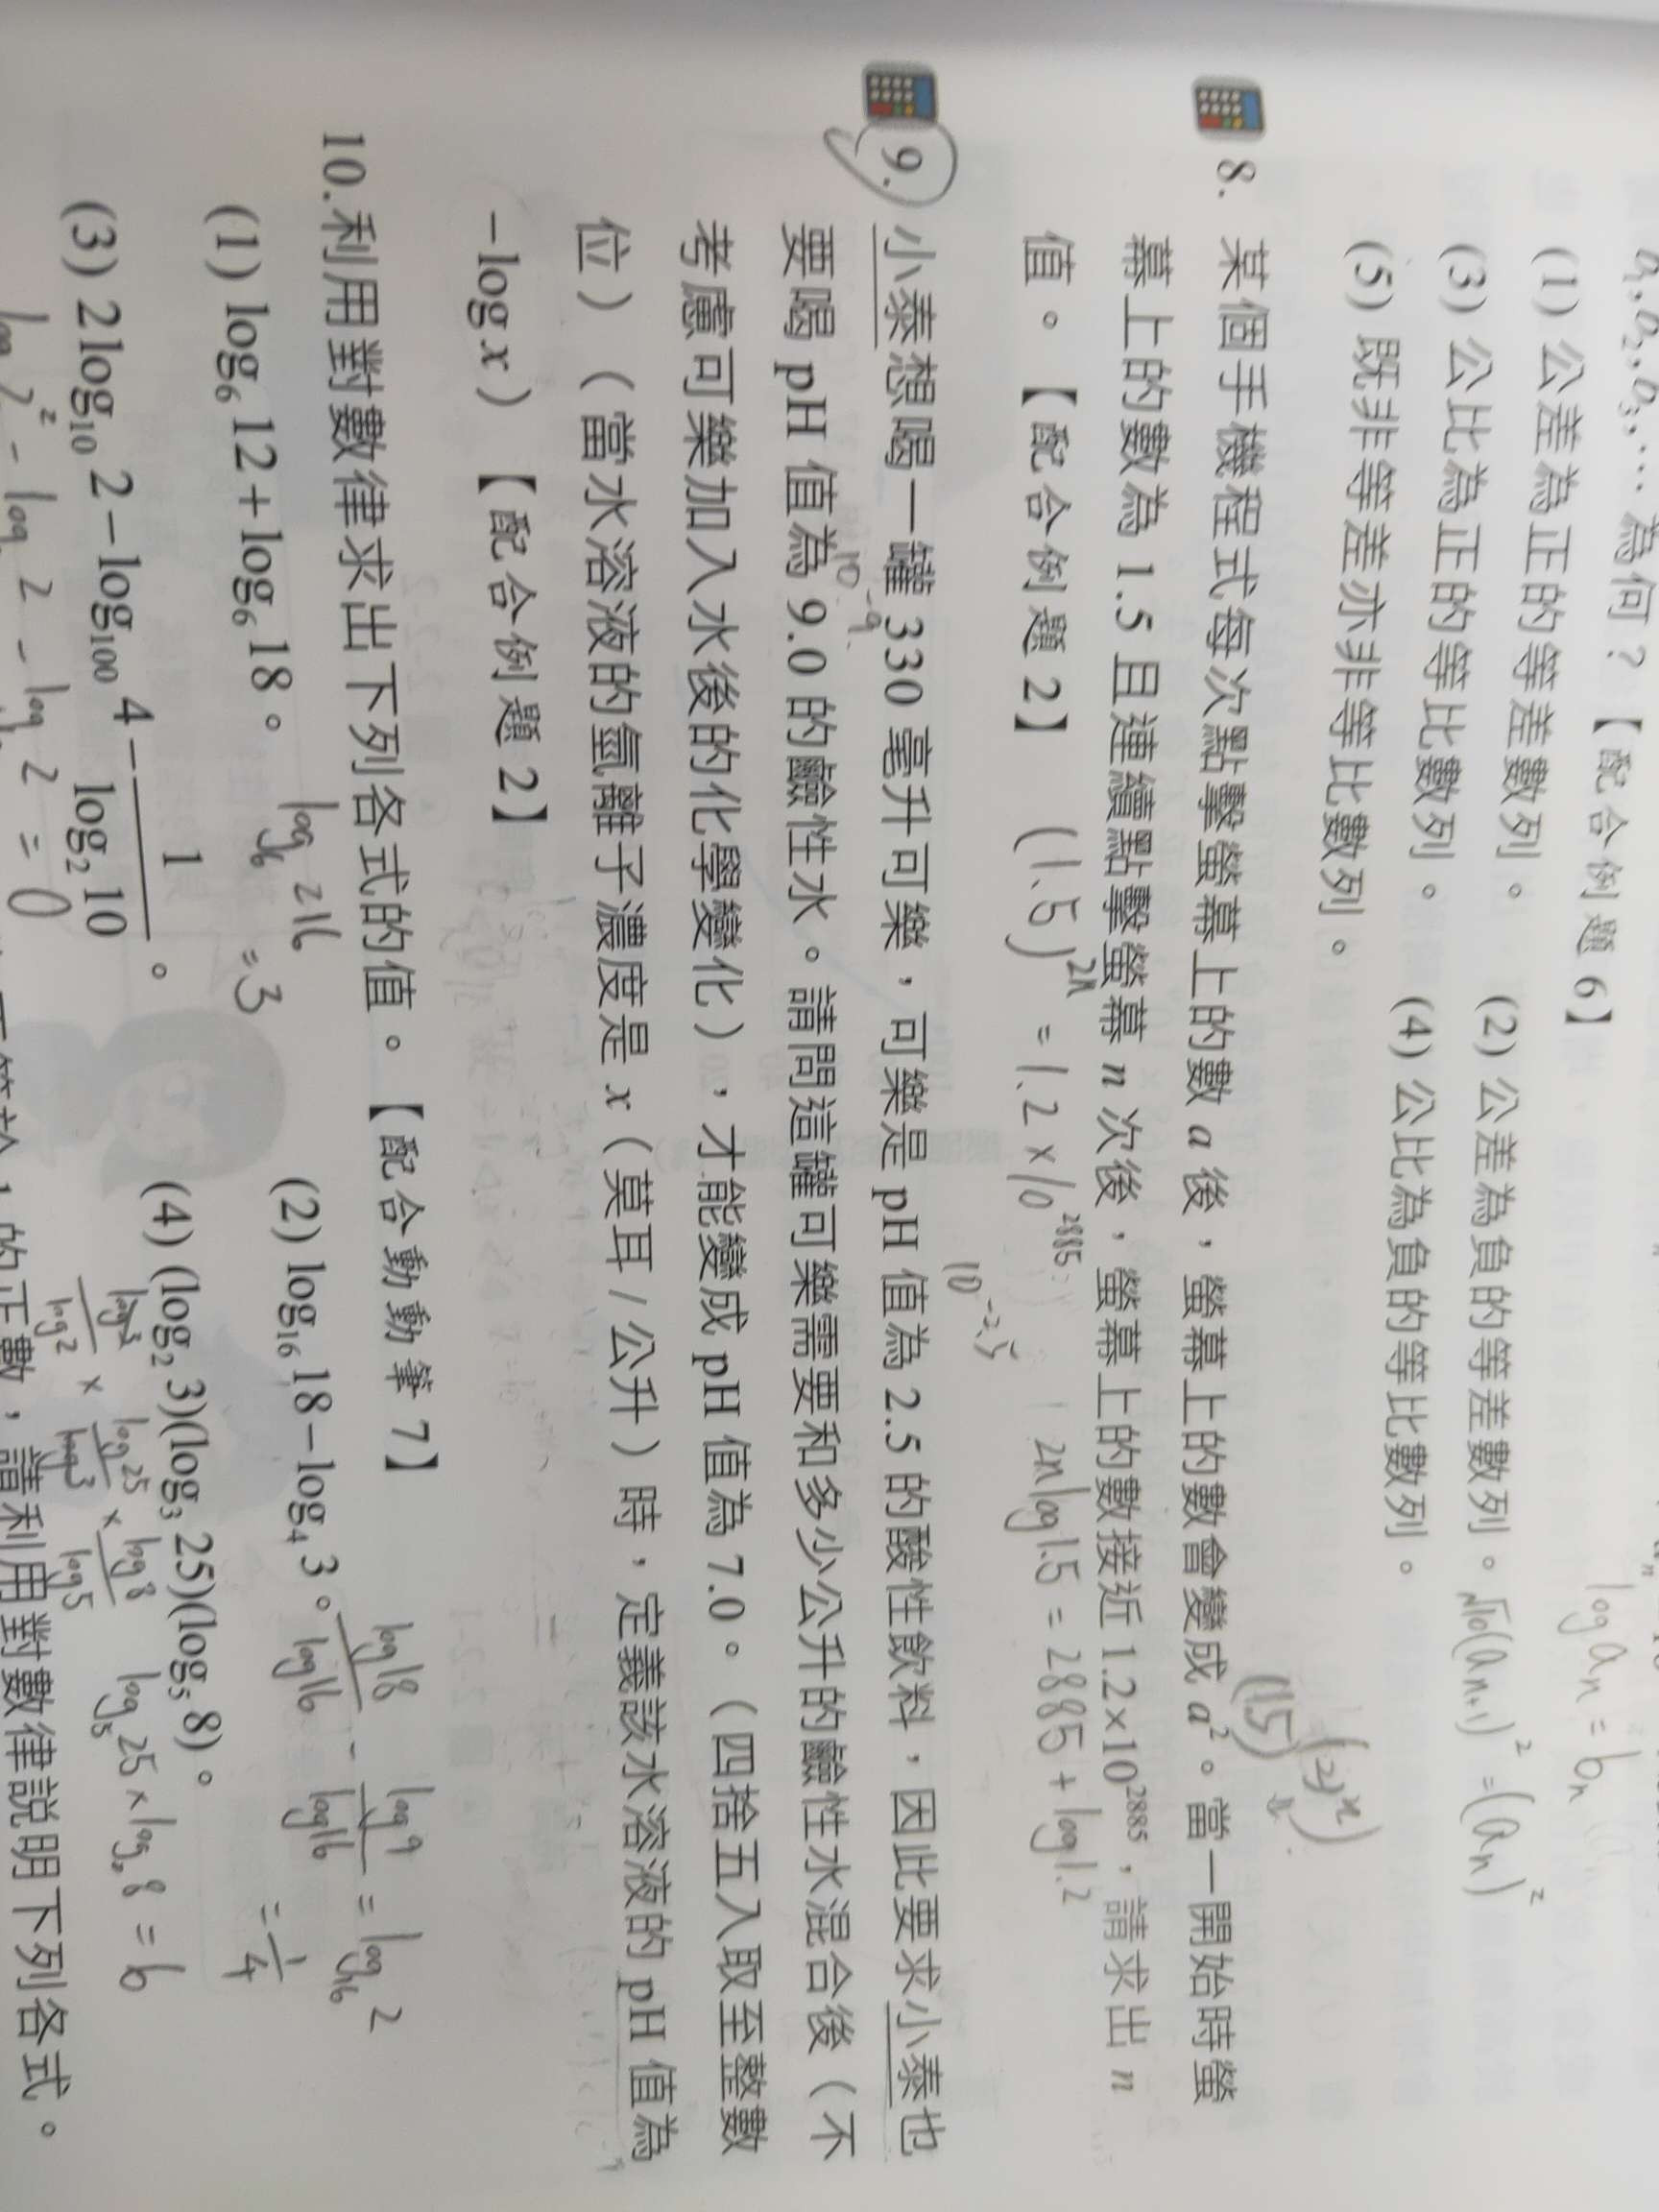 b₁, b₂, b₃, … 為何？【配合例題 6】
log aₙ = bₙ
(1) 公差為正的等差數列。 (2) 公差為負的等差數列。 √10(aₙ₊₁)² = (aₙ)²
(3) 公比為正的等比數列。 (4) 公比為負的等比數列。
(5) 既非等差亦非等比數列。
8. 某個手機程式每次點擊螢幕上的數 a 後，螢幕上的數會變成 a²。當一開始時螢
幕上的數為 1.5 且連續點擊螢幕 n 次後，螢幕上的數接近 1.2×10²⁸⁸⁵，請求出 n
值。【配合例題 2】 (1.5)²ⁿ = 1.2×10²⁸⁸⁵ 2n log1.5 = 2885 + log1.2
10⁻²·⁵
9. 小泰想喝一罐 330 毫升可樂，可樂是 pH 值為 2.5 的酸性飲料，因此要求小泰也
10⁻⁹
要喝 pH 值為 9.0 的鹼性水。請問這罐可樂需要和多少公升的鹼性水混合後（不
考慮可樂加入水後的化學變化），才能變成 pH 值為 7.0。（四捨五入取至整數
位）（當水溶液的氫離子濃度是 x（莫耳/公升）時，定義該水溶液的 pH 值為
−log x）【配合例題 2】
10. 利用對數律求出下列各式的值。【配合動動筆 7】
(1) log₆ 12 + log₆ 18。 log₆ 216 = 3 (2) log₁₆ 18 − log₄ 3。 log18/log16 − log9/log16 = log₁₆ 2 = 1/4
(3) 2 log₁₀ 2 − log₁₀₀ 4 − 1/log₂ 10。 (4) (log₂ 3)(log₃ 25)(log₅ 8)。
log 2² − log 2 − log 2 = 0 log3/log2 × log25/log3 × log8/log5 log₅ 25 × log₂ 8 = 6
的正數，請利用對數律說明下列各式。